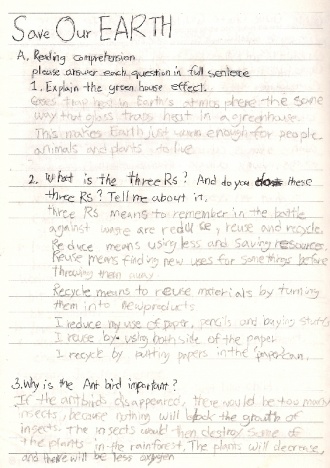 Save Our EARTH
A. Reading comprehension
please answer each question in full sentence
1. Explain the green house effect.
Gases trap heat in Earth's atmosphere the same
way that glass traps heat in a greenhouse.
This makes Earth just warm enough for people
animals and plants to live
2. What is the three Rs? And do you these
three Rs? Tell me about it.
Three Rs means to remember in the battle
against waste are reduce, reuse and recycle.
Reduce means using less and saving resources.
Reuse means finding new uses for somethings before
throwing them away.
Recycle means to reuse materials by turning
them into new products
I reduce my use of paper, pencils, and buying stuffs
I reuse by using both side of the paper
I recycle by putting papers in the paper can.
3. Why is the Ant bird important?
If the antbirds disappeared, there would be too many
insects, because nothing will the growth of
insects. the insects would then destroy some of
the plants in the rainforest. The plants will decrease,
and there will be less oxygen